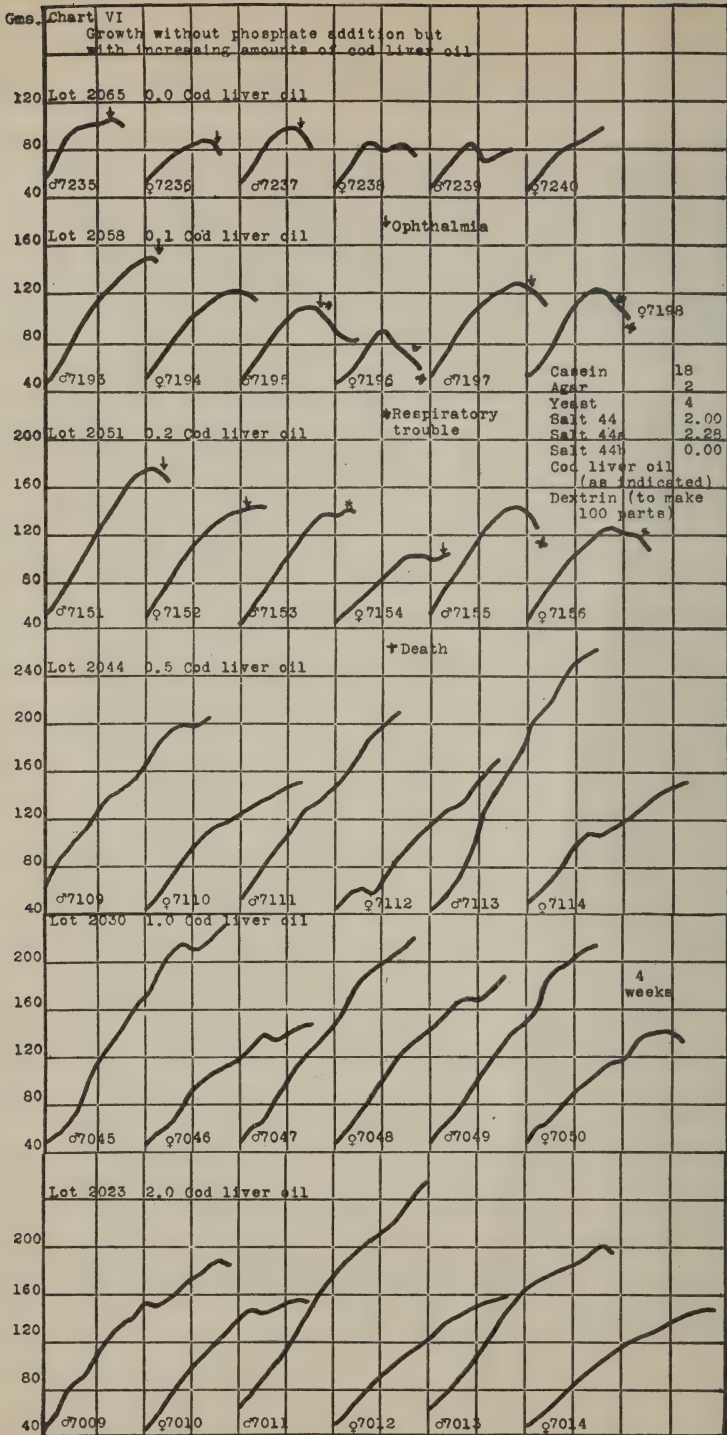 Gms. Chart VI
Growth without phosphate addition but
with increasing amounts of cod liver oil
120
Lot 2065 0.0 Cod liver oil
80
40
♂7235 ♀7236 ♂7237 ♀7238 ♂7239 ♀7240
160
Lot 2058 0.1 Cod liver oil
↓Ophthalmia
120
80
40
♂7193 ♀7194 ♂7195 ♀7196 ♂7197 ♀7198
Casein 18
Agar 2
Yeast 4
Salt 44 2.00
Salt 44a 2.28
Salt 44b 0.00
Cod liver oil
(as indicated)
Dextrin (to make
100 parts)
*Respiratory
trouble
200
Lot 2051 0.2 Cod liver oil
160
120
80
40
♂7151 ♀7152 ♂7153 ♀7154 ♂7155 ♀7156
†Death
240
Lot 2044 0.5 Cod liver oil
200
160
120
80
40
♂7109 ♀7110 ♂7111 ♀7112 ♂7113 ♀7114
Lot 2030 1.0 Cod liver oil
200
160
120
80
40
4
weeks
♂7045 ♀7046 ♂7047 ♀7048 ♂7049 ♀7050
Lot 2023 2.0 Cod liver oil
200
160
120
80
40
♂7009 ♀7010 ♂7011 ♀7012 ♂7013 ♀7014